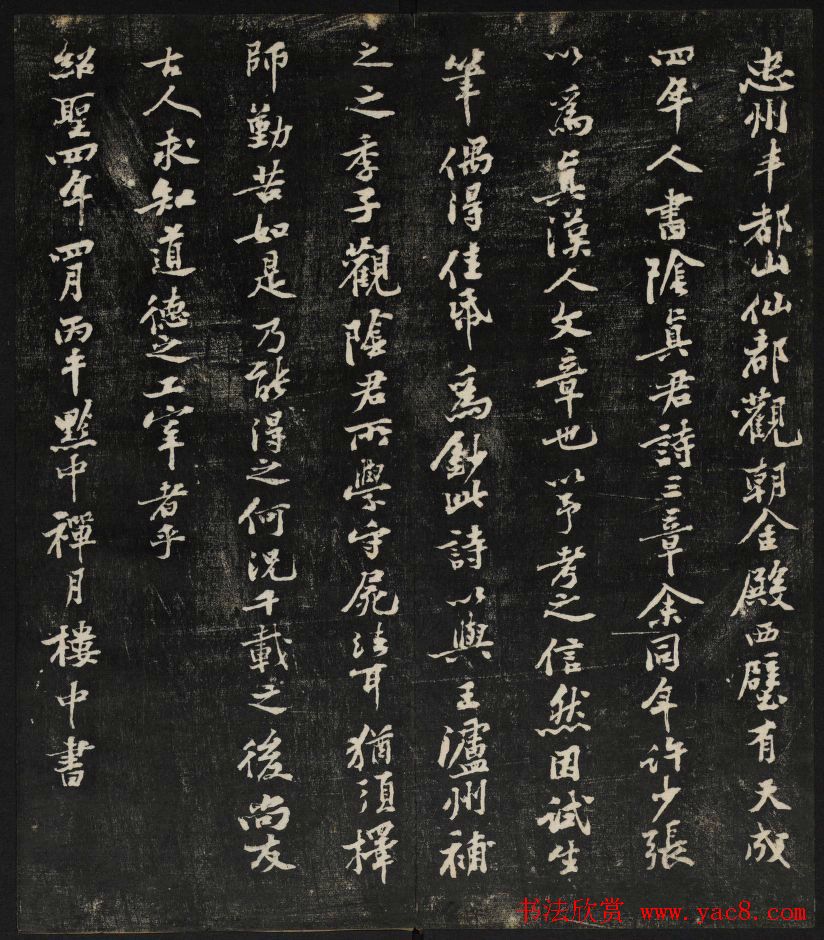 忠州丰都山仙都觀朝金殿西壁有天成
四年人書陰真君詩三章余同年許少張
以爲真漢人文章也以予考之信然因試生
筆偶得佳紙爲鈔此詩以與王瀘州補
之之季子觀陰君所學守屍法耳猶須擇
師勤苦如是乃能得之何況千載之後尚友
古人求知道德之工宰者乎
紹聖四年四月丙午黔中禪月樓中書
书法欣赏 www.yac8.com